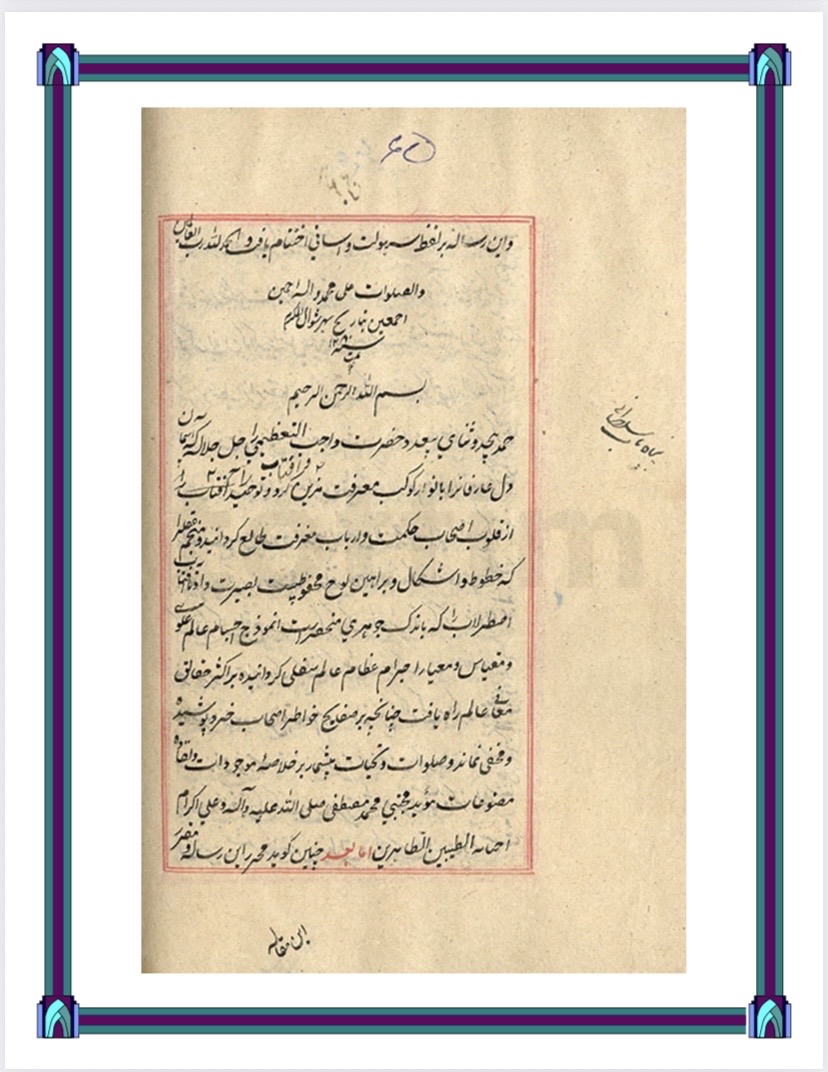 ۶۵
واین رساله بر لفظ سهولت و آسانی اختتام یافت و الحمد لله رب العالمین
والصلوات علی محمد واله اجمین
اجمعین بتاریخ شهر شوال المکرم
سنه
تمت
بسم الله الرحمن الرحیم
حمد بیحد و ثنای بیعد حضرت واجب التعظیمی را جل جلاله که آسمان
دل عارفانرا بانوار کوکب معرفت مزین کرد و توحید را آفتاب را
از قلوب اصحاب حکمت و ارباب معرفت طالع کردانید و منجم عقل را
که خطوط و اشکال و براهین لوح محفوظیت بصیرت داد تا آفتاب
اصطرلاب را که باندک جوهری منحصر است انموذج اجسام عالم علوی
و مقیاس و معیار اجرام عظام عالم سفلی کردانیده بر اکثر حقائق
معانی عالم راه یافت چنانچه بر صفایح خواطر اصحاب خرد پوشیده
و مخفی نماند و صلوات و تحیات بیشمار بر خلاصهٔ موجودات و نقاوه
مصنوعات مؤید مجتبی محمد مصطفی صلی الله علیه وآله و علی اکرام
احبائه الطیبین الطاهرین اما بعد چنین کوید محرر این رساله و مقرر
این مقاله